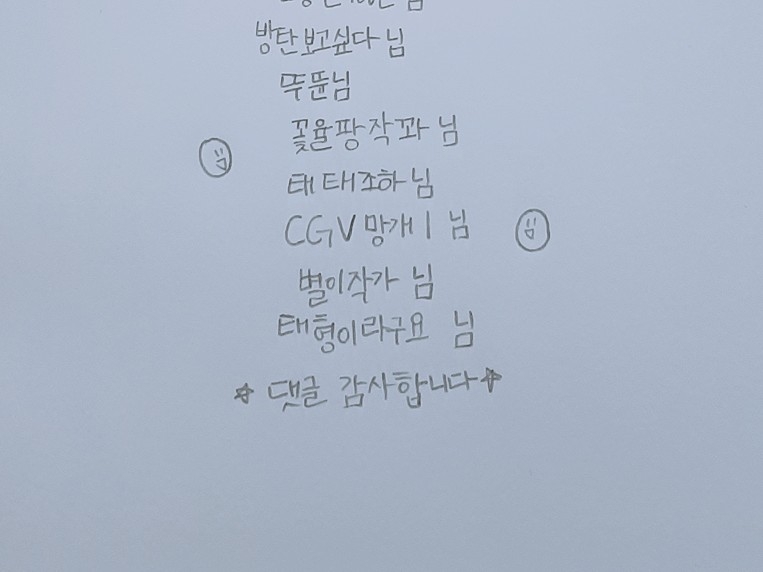 방탄보고싶다 님
뚜뚠님
꽃율팡작꽈 님
태태조하 님
CGV망개 l 님
별이작가 님
태형이라구요 님
☆ 댓글 감사합니다☆